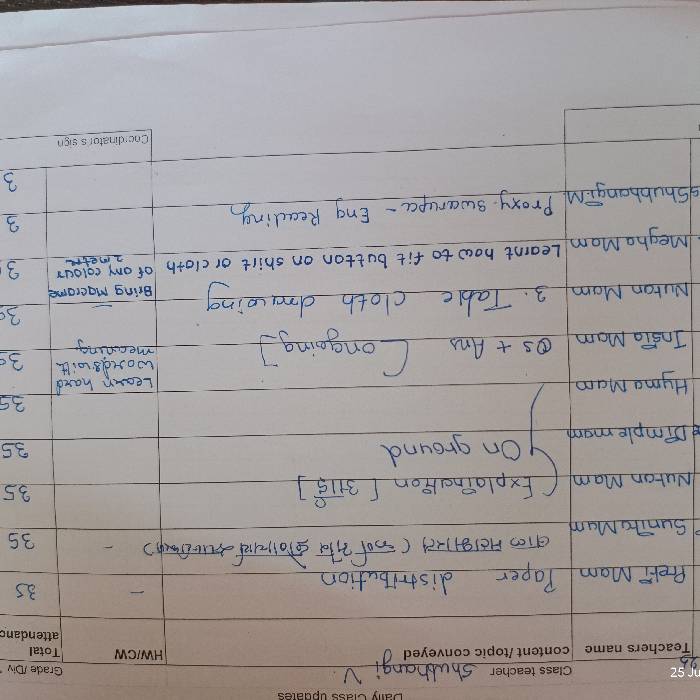 Daily Class updates
Class teacher Shubhangi V. Grade /Div
Teachers name content /topic conveyed HW/CW Total attendanc
Preti Mam Paper distribution - 35
Sunita Mam - 35
Nutan Mam Explaination [ ] 35
Dimple mam On ground 35
Hyma Mam 35
Insia Mam Qs + Ans [ongoing] Learn hard
words with
meaning
Nutan Mam 3. Table cloth drawing
Megha Mam Learnt how to fit button on shirt or cloth Bring Macrame
of any colour
2 metre
Shubhangi M Proxy. Swarupa - Eng Reading 3
3
Coordinator's sign
25 Ju